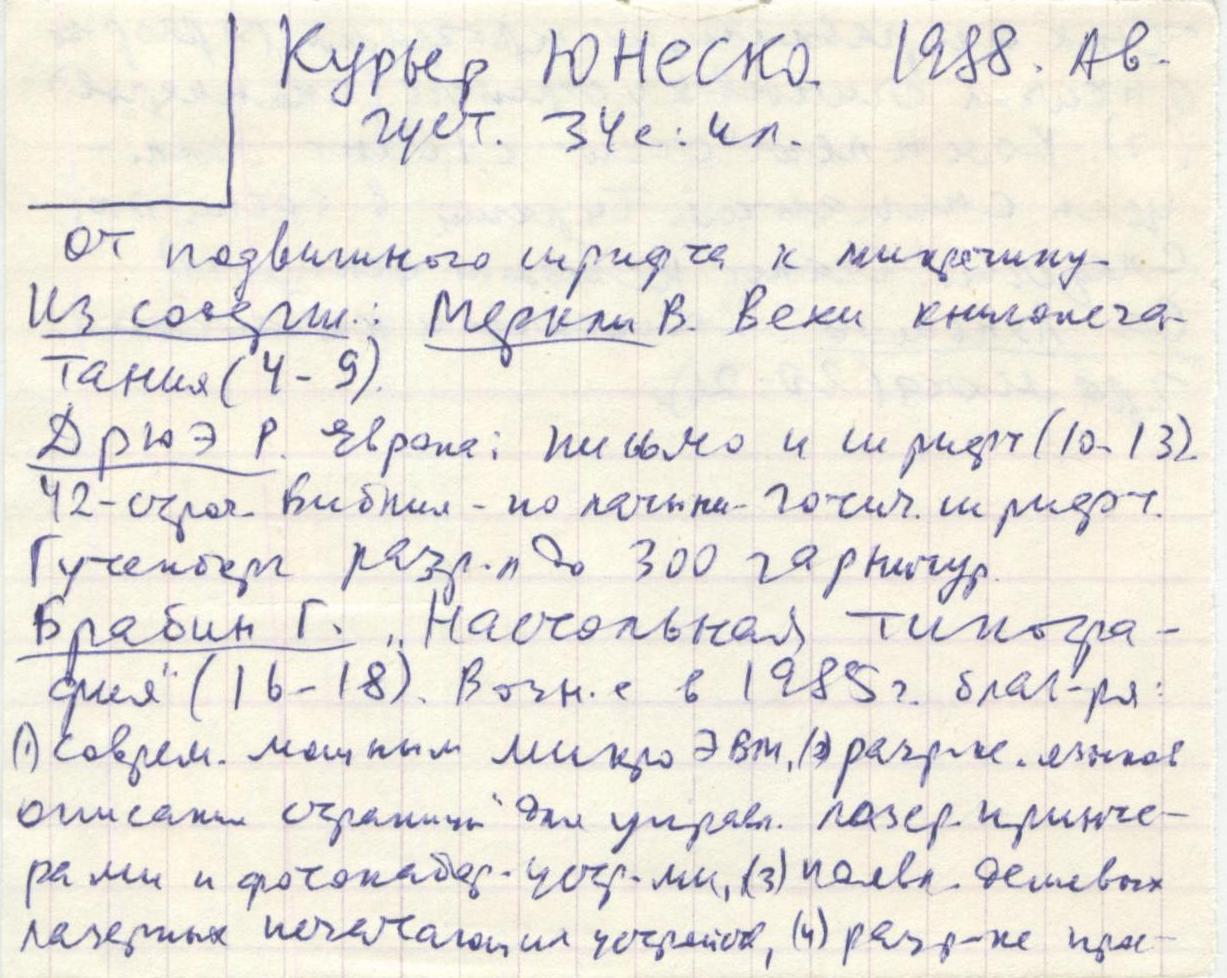 Курьер ЮНЕСКО. 1988. Ав-
густ. 34с: ил.
От подвижного шрифта к микрочипу.
Из содерж.: Меркли В. Веки книгопеча-
тания (4-9).
Дрюэ Р. Европа: письмо и шрифт (10-13)
42-строч. Библия - по латыни готич. шрифт.
Гутенберг разр.л до 300 гарнитур.
Брабин Г. „Настольная типогра-
фия" (16-18). Возн.е в 1985г. благ-ря:
(1) соврем. мощным микроЭВМ, (2) разр-ке языков
описания страницы для управл. лазер. принте-
рами и фотонабор. устр-ми, (3) появл. дешевых
лазерных печатающих устройств, (4) разр-ке прог-